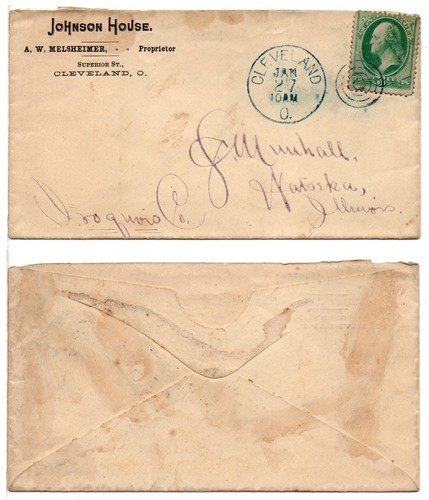 Johnson House.
A. W. MELSHEIMER, - - Proprietor
SUPERIOR ST.,
CLEVELAND, O.
CLEVELAND
JAN
27
10AM
O.
J. Munhall,
Watseka,
Illinois.
Iroquois Co.